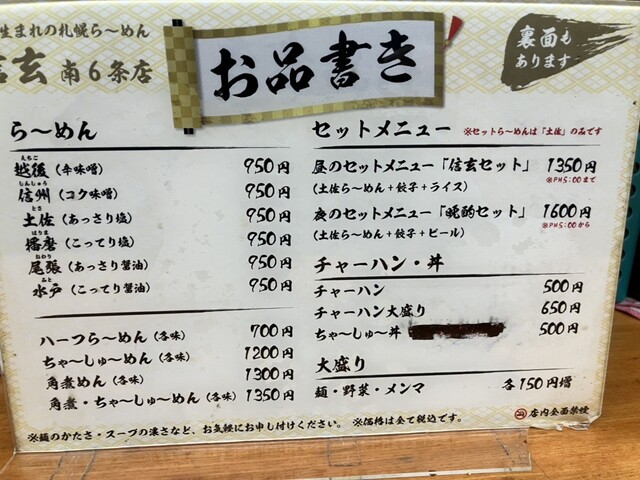 生まれの札幌ら〜めん
信玄 南6条店
お品書き
裏面も
あります
ら〜めん
えちご
越後（辛味噌） 950円
しんしゅう
信州（コク味噌） 950円
とさ
土佐（あっさり塩） 950円
はりま
播磨（こってり塩） 950円
おわり
尾張（あっさり醤油） 950円
みと
水戸（こってり醤油） 950円
ハーフら〜めん（各味） 700円
ちゃ〜しゅ〜めん（各味） 1200円
角煮めん（各味） 1300円
角煮・ちゃ〜しゅ〜めん（各味） 1350円
セットメニュー ※セットら〜めんは「土佐」のみです
昼のセットメニュー「信玄セット」 1350円
（土佐ら〜めん＋餃子＋ライス） ※PM5:00まで
夜のセットメニュー「晩酌セット」 1600円
（土佐ら〜めん＋餃子＋ビール） ※PM5:00から
チャーハン・丼
チャーハン 500円
チャーハン大盛り 650円
ちゃ〜しゅ〜丼 500円
大盛り
麺・野菜・メンマ 各150円増
店内全面禁煙
※麺のかたさ・スープの濃さなど、お気軽にお申し付けください。 ※価格は全て税込です。